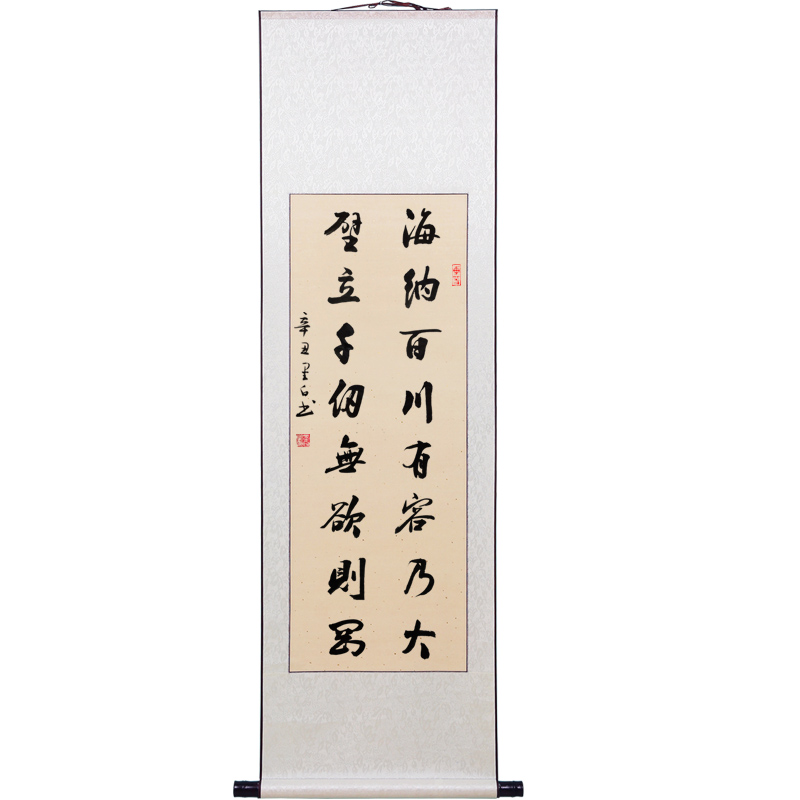 海納百川有容乃大
壁立千仞無欲則剛
辛丑墨石书